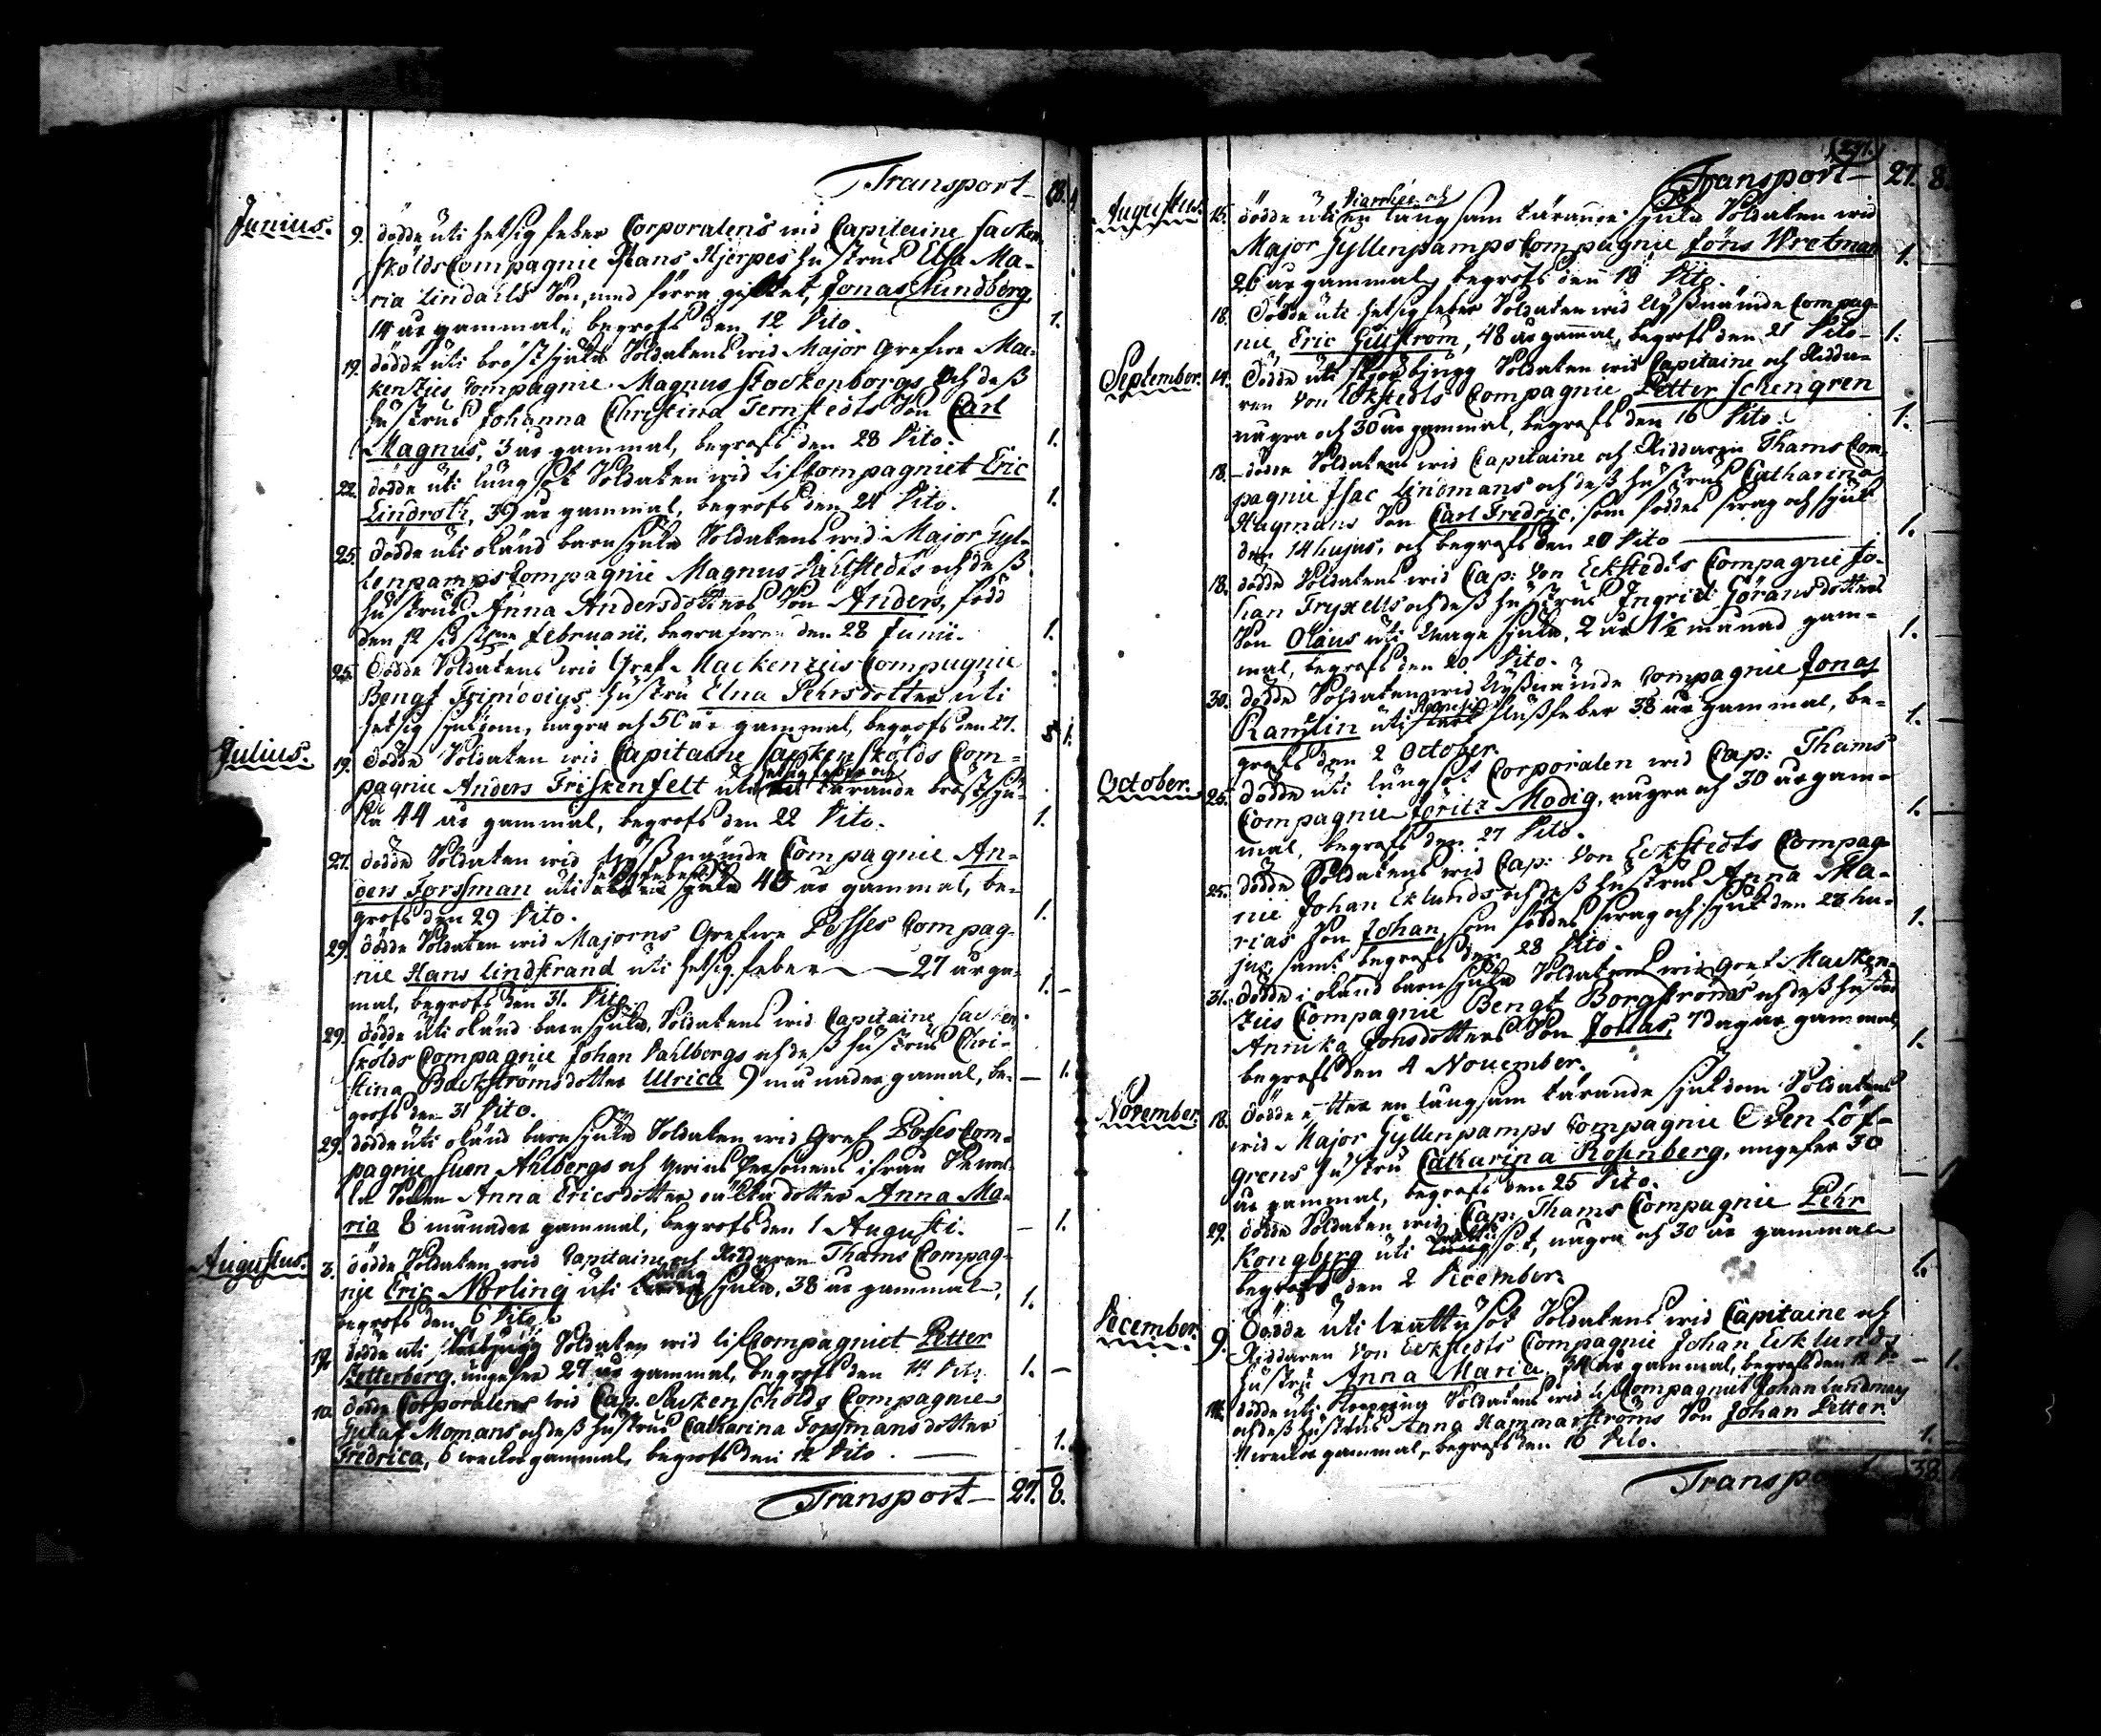 Transport 18. 4.
Junius. 9. dödde uti hetsig feber Corporalens wid Capitaine Sacken-
skölds Compagnie Hans Hjerpes hustrus Elsa Ma-
ria Lindahls Son, med förra giftet, Jonas Sundberg,
14 år gammal, begrofs den 12 Dito. 1.
19. dödde uti bröstsjuka Soldatens wid Major Grefwe Mac-
kenzies Compagnie Magnus Stockenborgs och deß
hustrus Johanna Christina Ternstedts Son Carl
Magnus, 3 år gammal, begrofs den 23 Dito. 1.
22. dödde uti lungsot Soldaten wid Lif Compagniet Eric
Lindroth, 39 år gammal, begrofs den 24 Dito. 1.
25. dödde uti okänd barnsjuka Soldatens wid Major Gyl-
lenpamps Compagnie Magnus Dahlstedts och deß
hustrus Anna Andersdotters Son Anders, född
den 12 sidstl. Februarii, begrafwen den 28 Junii. 1.
25. Dödde Soldatens wid Gref Mackenzies Compagnie
Bengt hustru Elna Pehrsdotter uti
hetsig sjukdom, några och 50 år gammal, begrofs den 27. 1.
Julius. 19. dödde Soldaten wid Capitaine Sackenskölds Com-
pagnie Anders Friskenfelt uti hetsig feber och tärande bröstsju-
ka 44 år gammal, begrofs den 22 Dito. 1.
27. dödde Soldaten wid nyßnämde Compagnie An-
ders Forssman uti sjuka 40 år gammal, be-
grofs den 29 Dito. 1.
29. dödde Soldaten wid Majorns Grefwe Posses Compag-
nie Hans Lindstrand uti hetsig feber 27 år ga-
mal, begrofs den 31. Dito. 1.
29. dödde uti okänd barnsjuka, Soldatens wid Capitaine Sacken-
skölds Compagnie Johan Dahlbergs och deß hustrus Chri-
stina Backströms dotter Ulrica 9 månader gamal, be- 1.
grofs den 31 Dito.
29. dödde uti okänd barnsjuka Soldaten wid Gref Posses Com-
pagnie Suen Ahlbergs och qwins Personens ifrån
Anna Ericsdotter oäkta dotter Anna Ma-
ria 8 månader gammal, begrofs den 1 Augusti. 1.
Augustus. 3. dödde Soldaten wid Capitaine och Riddaren Thams Compag-
nie Eric Norling uti sjuka, 38 år gammal, 1.
begrofs den 6 Dito.
12. dödde uti Soldaten wid Lif Compagniet Petter
Zetterberg, ungefer 29 år gammal, begrofs den 14 Dito. 1.
10. dödde Corporalens wid Cap. Sackenschölds Compagnie
Gustaf Momans och deß hustrus Catharina Forssmans dotter
Fredrica, 6 weckor gammal, begrofs den 12 Dito. 1.
Transport 27. 8.
(271.)
Transport 27. 8.
Augustus. 15. dödde uti Diarrhée och långsam tärande sjuka Soldaten wid
Major Gyllenpamps Compagnie Jöns Wretman
26 år gammal, begrofs den 18 Dito. 1.
18. Dödde uti hetsig feber Soldaten wid nyßnämde Compag-
nie Eric Gillström, 48 år gammal, begrofs den 21 Dito 1.
September. 14. Dödde uti skörbjugg Soldaten wid Capitaine och Ridda-
ren von Eckstedts Compagnie Petter Schengren
några och 30 år gammal, begrofs den 16 Dito. 1.
18. dödde Soldatens wid Capitaine och Riddaren Thams Com-
pagnie Isac Lindmans och deß hustrus Catharina
Hagmans Son Carl Fredric, som föddes swag och sjuk
den 14 hujus, och begrofs den 20 Dito 1.
18. dödde Soldatens wid Cap: von Eckstedts Compagnie Jo-
han Fryxells och deß hustrus Ingrid Göransdotters
Son Olaus uti sjuka, 2 år 1½ månad gam-
mal, begrofs den 20 Dito. 1.
30. dödde Soldaten wid nyßnämde Compagnie Jonas
Ramlin uti flußfeber 38 år gammal, be-
grofs den 2 October. 1.
October. 25. dödde uti lungsot Corporalen wid Cap: Thams
Compagnie Göritz Modig, några och 30 år gam-
mal, begrofs den 27 Dito. 1.
25. dödde Soldatens wid Cap: von Eckstedts Compag-
nie Johan Eklunds och deß hustrus Anna Ma-
rias Son Johan, som föddes swag och sjuk den 23 hu-
jus, samt begrofs den 28 Dito. 1.
31. dödde i okänd barnsjuka Soldatens wid Gref Macken-
zies Compagnie Bengt Borgströms och deß hustrus
Annika Jonsdotters Son Jonas, 7 dagar gammal,
begrofs den 4 November. 1.
November. 18. dödde efter en långsam tärande sjukdom Soldatens
wid Major Gyllenpamps Compagnie Sven Löf-
grens hustru Catharina Rosenberg, ungefer 30
år gammal, begrofs den 25 Dito. 1.
29. dödde Soldaten wid Cap: Thams Compagnie Pehr
Kongberg uti sot, några och 30 år gammal
begrofs den 2 December. 1.
December. 9. Dödde uti wattusot Soldatens wid Capitaine och
Riddaren von Eckstedts Compagnie Johan Ecklunds
hustru Anna Maria, 34 år gammal, begrofs den 12 Do 1.
14. dödde uti Soldatens wid Lif Compagniet Johan Lundmans
och deß hustrus Anna Hammarströms Son Johan Petter.
11 weckor gammal, begrofs den 16 Dito. 1.
Transport 38.